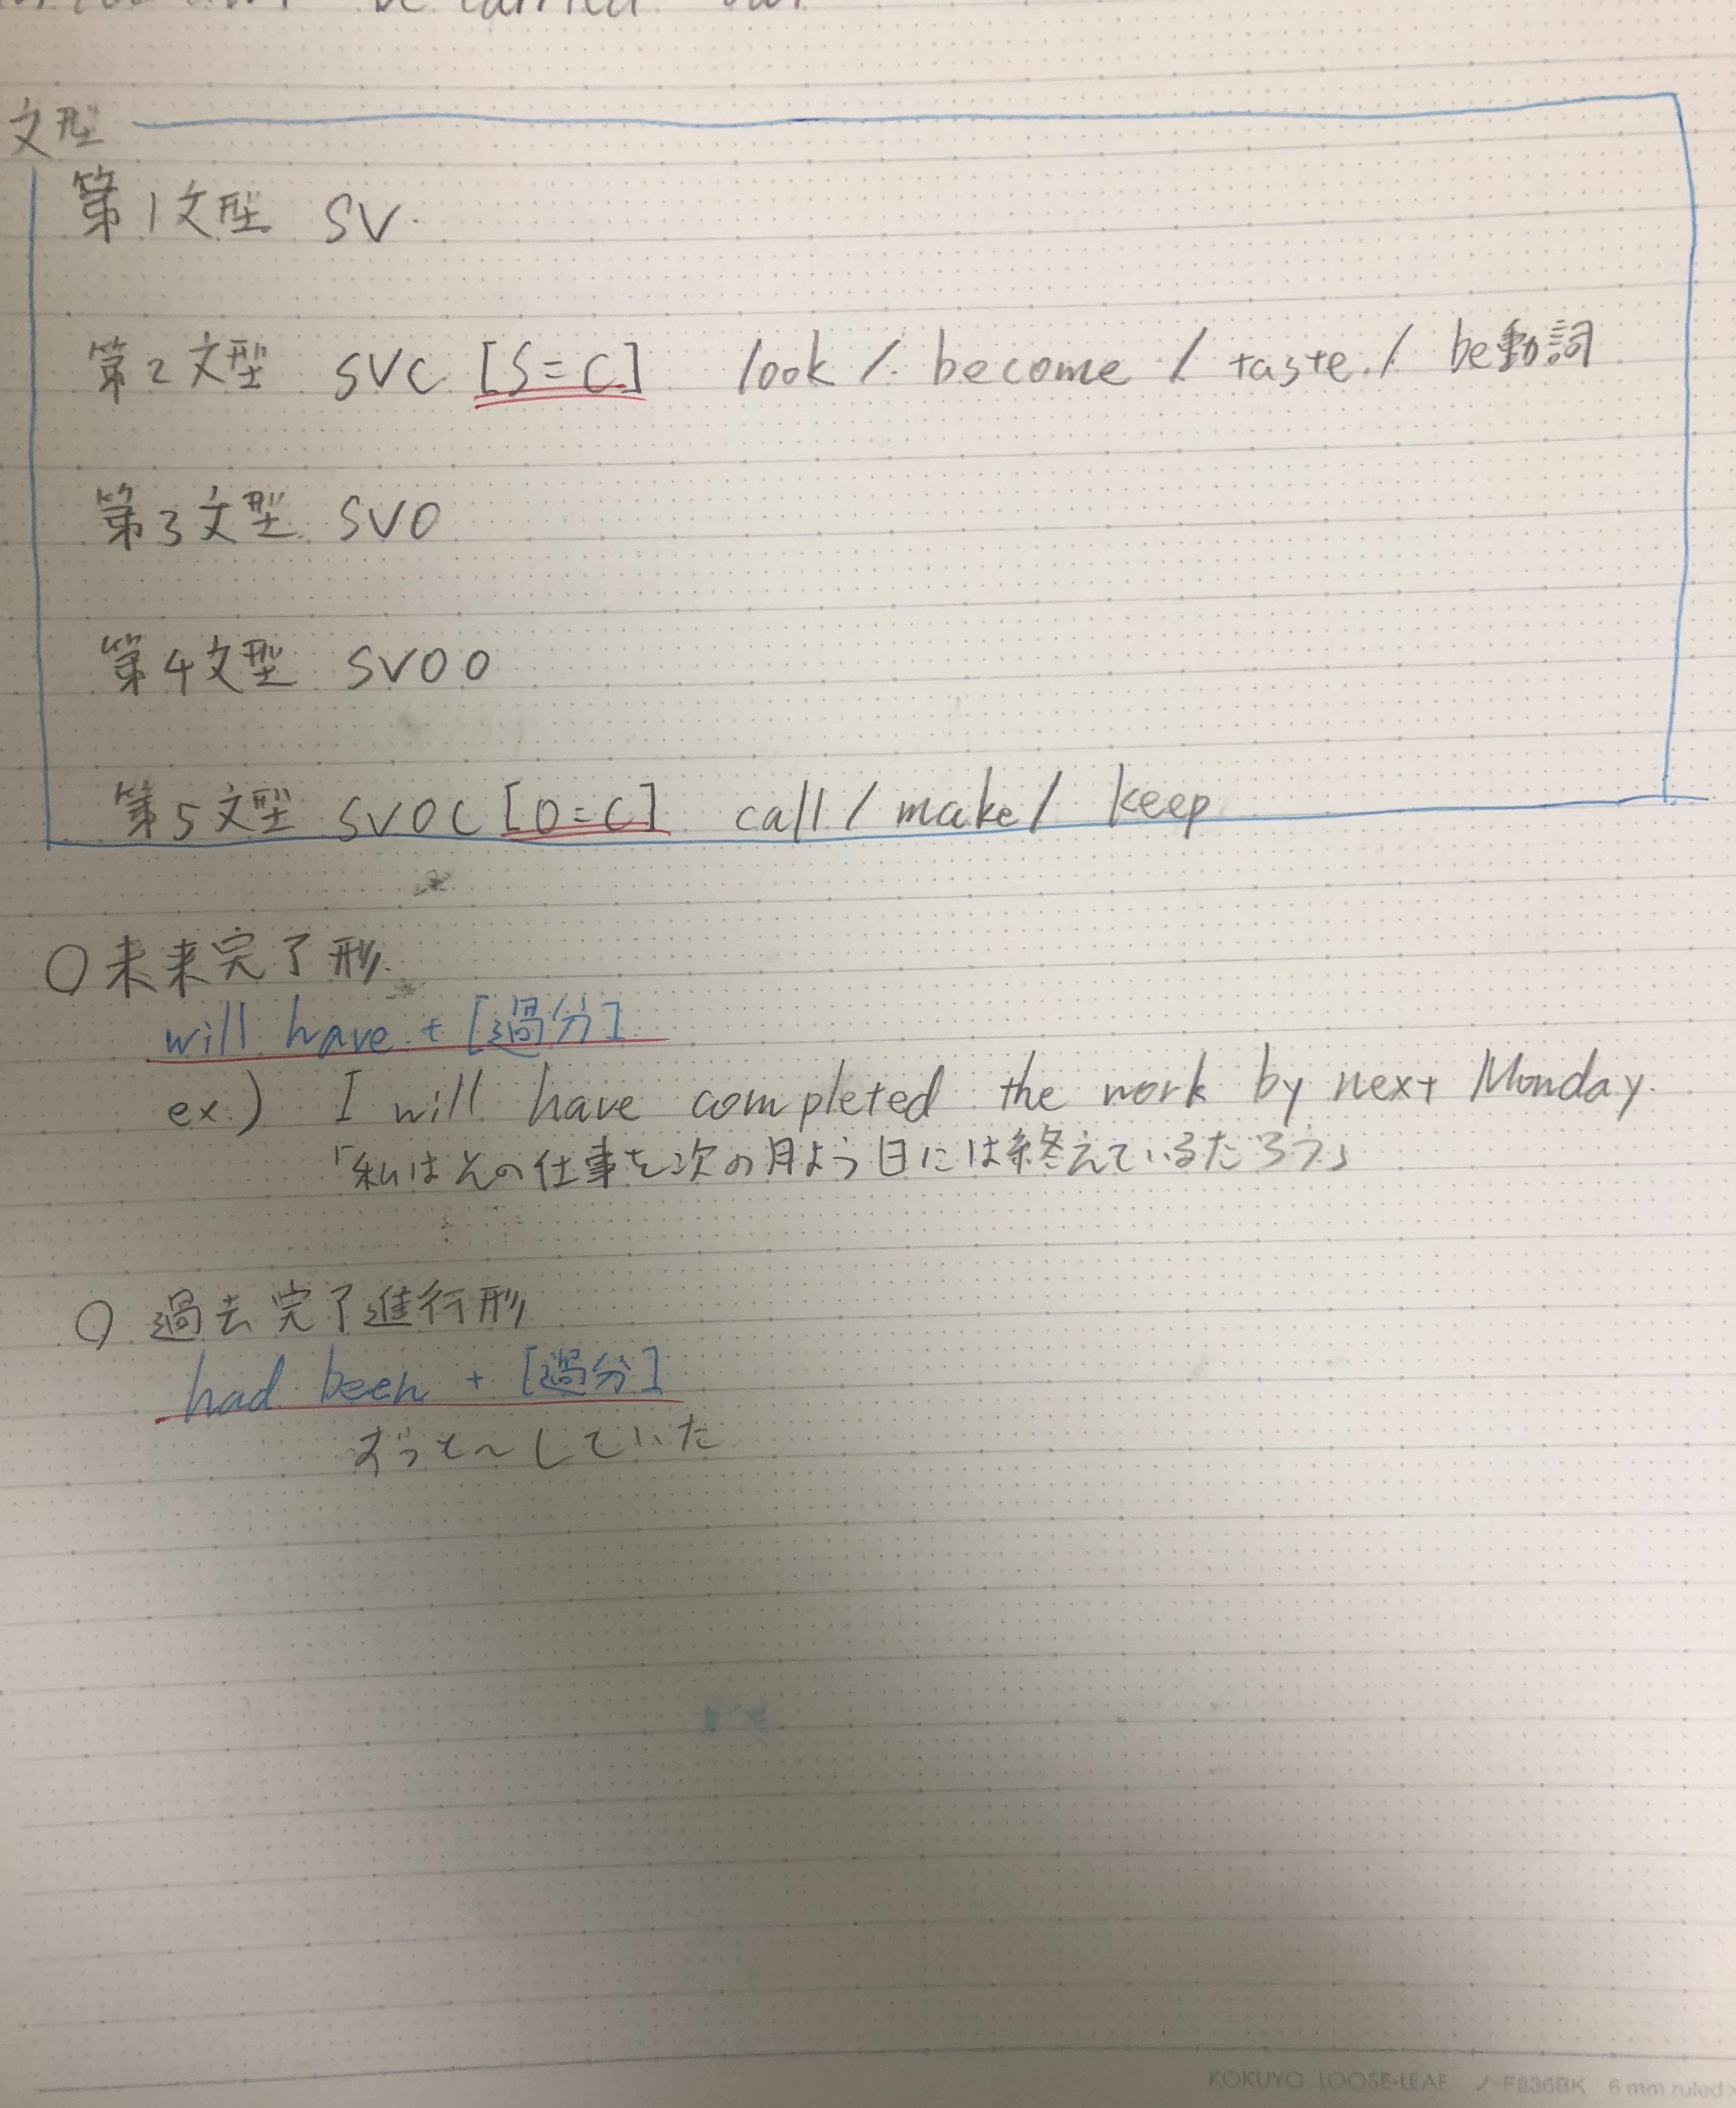 be carried out
文型
第1文型 SV
第2文型 SVC [S=C] look / become / taste / be動詞
第3文型 SVO
第4文型 SVOO
第5文型 SVOC [O=C] call / make / keep
○未来完了形
will have + [過分]
ex.) I will have completed the work by next Monday.
「私はその仕事を次の月よう日には終えているだろう」
○過去完了進行形
had been + [過分]
ずっと～していた
KOKUYO LOOSE-LEAF ノ-F836BK 6 mm ruled